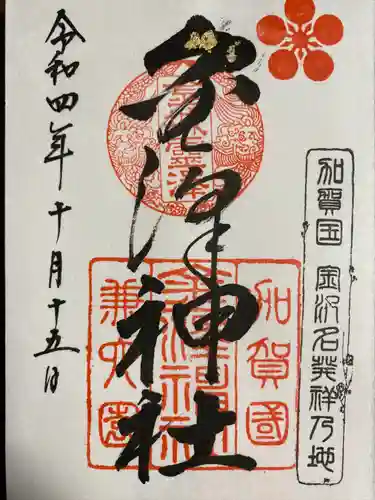 加賀国 金沢名発祥乃地
金澤神社
加賀國
金澤神社
兼六園
令和四年十月十五日